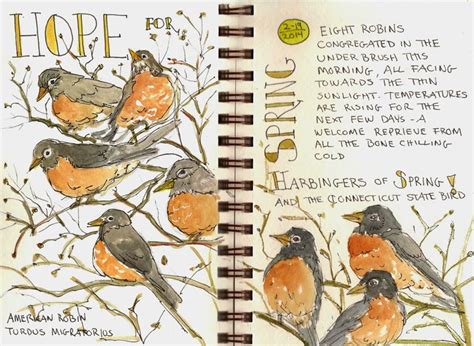 HOPE FOR
AMERICAN ROBIN
TURDUS MIGRATORIUS
2-19
2014
SPRING
EIGHT ROBINS
CONGREGATED IN THE
UNDERBRUSH THIS
MORNING, ALL FACING
TOWARDS THE THIN
SUNLIGHT. TEMPERATURES
ARE RISING FOR THE
NEXT FEW DAYS - A
WELCOME REPRIEVE FROM
ALL THE BONE CHILLING
COLD
HARBINGERS OF SPRING!
AND THE CONNECTICUT STATE BIRD